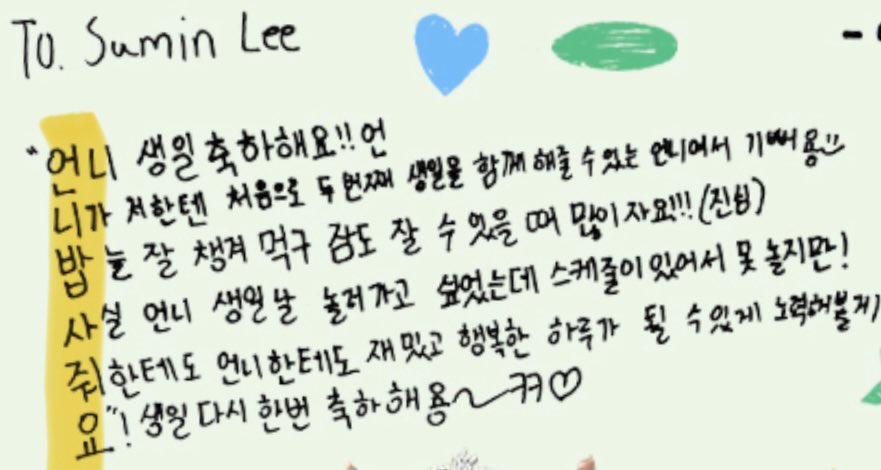 To. Sumin Lee
"언니 생일 축하해요!! 언
니가 저한텐 처음으로 두번째 생일을 함께 해줄 수 있는 언니여서 기뻐용
밥 늘 잘 챙겨 먹구 잠도 잘 수 있을 때 많이 자요!!! (진심)
사실 언니 생일날 놀러가고 싶었는데 스케줄이 있어서 못 놀지만!
줘한테도 언니한테도 재밌고 행복한 하루가 될 수 있게 노력해볼게
요"! 생일 다시 한번 축하해용~ㅋㅋ♡